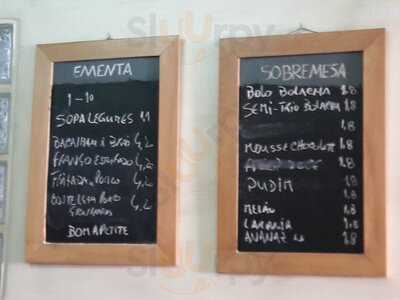 EMENTA
1-10
SOPA LEGUMES 1,1
BACALHAU À BRÁS 4,2
FRANGO ESTUFADO 4,2
PORCO 4,2
PORCO 4,2
BOM APETITE
SOBREMESA
BOLO BOLACHA 1,8
SEMI-FRIO BOLACHA 1,8
1,8
MOUSSE CHOCOLATE 1,8
1,8
PUDIM 1,8
MELÃO 1,8
LARANJA 1,8
ANANAZ 1,8